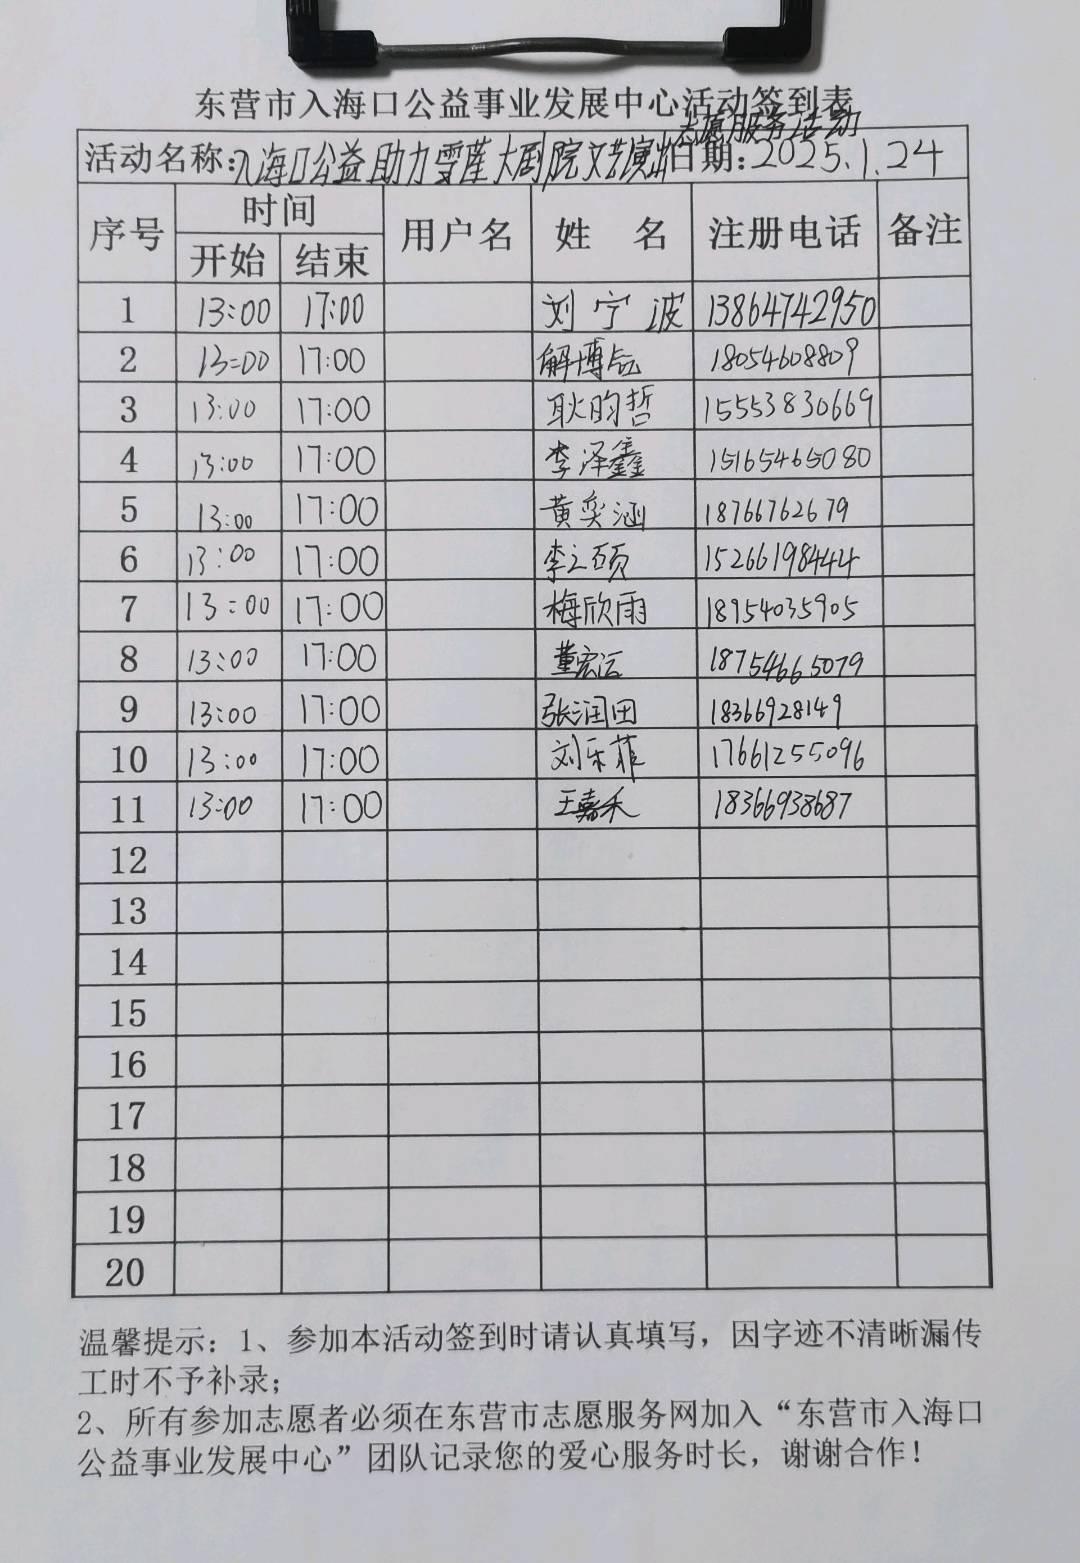 东营市入海口公益事业发展中心活动签到表
志愿服务活动
活动名称:入海口公益助力雪莲大剧院文艺演出日期:2025.1.24
序号 时间 用户名 姓名 注册电话 备注
开始 结束
1 13:00 17:00 刘宁波 13864742950
2 13:00 17:00 解博 18054608809
3 13:00 17:00 耿昀哲 15553830669
4 13:00 17:00 李泽鑫 15165465080
5 13:00 17:00 黄奕涵 18766762679
6 13:00 17:00 李之硕 15266198444
7 13:00 17:00 梅欣雨 18954035905
8 13:00 17:00 董宏运 18754665079
9 13:00 17:00 张润田 18366928149
10 13:00 17:00 刘乐菲 17661255096
11 13:00 17:00 王嘉禾 18366938687
12
13
14
15
16
17
18
19
20
温馨提示:1、参加本活动签到时请认真填写,因字迹不清晰漏传
工时不予补录;
2、所有参加志愿者必须在东营市志愿服务网加入“东营市入海口
公益事业发展中心”团队记录您的爱心服务时长,谢谢合作!